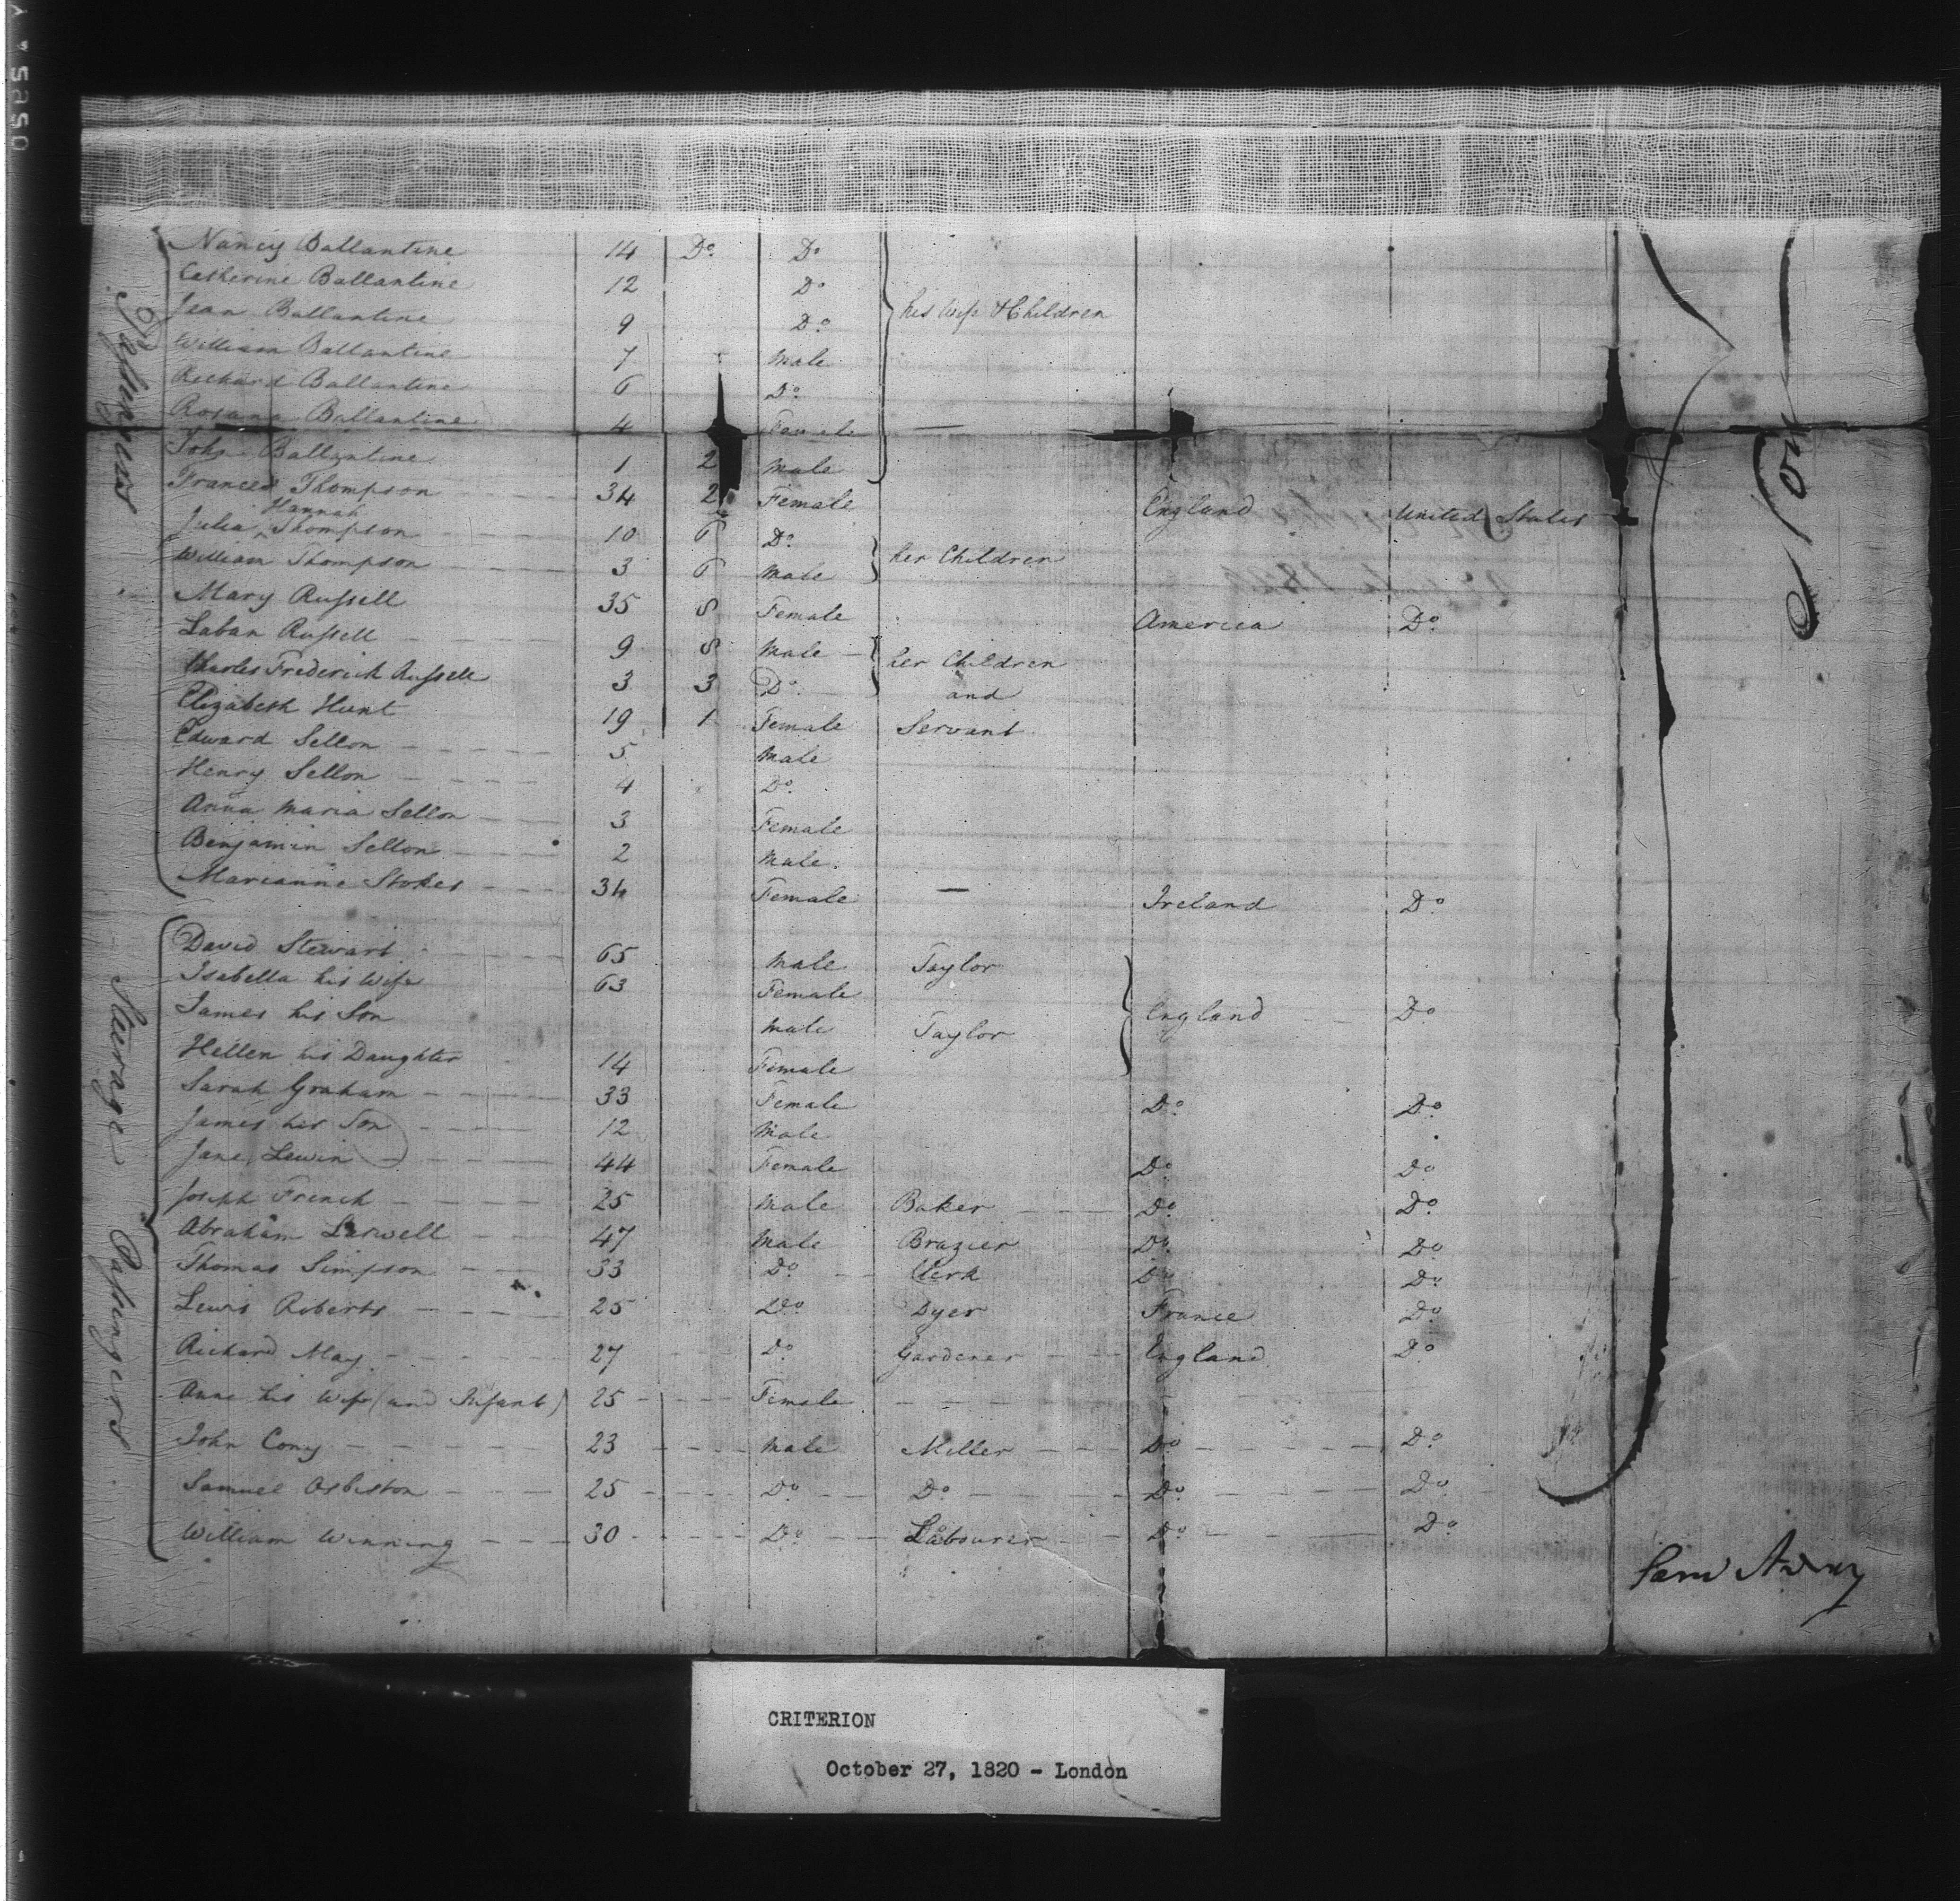 Passengers
Nancy Ballantine 14 Do Do
Catherine Ballantine 12 Do
Jean Ballantine 9 Do his Wife & Children
William Ballantine 7 Male
Richard Ballantine 6 Do
Rosana Ballantine 4 Female —
John Ballantine 1 2 Male
Frances Thompson 34 2 Female England United States
Julia Hannah Thompson 10 6 Do
William Thompson 3 6 Male her Children
Mary Russell 35 8 Female America Do
Laban Russell 9 8 Male her Children
Charles Frederick Russell 3 3 Do and
Elizabeth Hunt 19 1 Female Servant
Edward Sellon 5 Male
Henry Sellon 4 Do
Anna Maria Sellon 3 Female
Benjamin Sellon 2 Male
Marianne Stokes 34 Female — Ireland Do
Steerage Passengers
David Stewart 65 Male Taylor
Isabella his Wife 63 Female
James his Son Male Taylor England Do
Hellen his Daughter 14 Female
Sarah Graham 33 Female Do Do
James her Son 12 Male
Jane Lewin 44 Female Do Do
Joseph French 25 Male Baker Do Do
Abraham Larwell 47 Male Brazier Do Do
Thomas Simpson 33 Do Clerk Do Do
Lewis Roberts 25 Do Dyer France Do
Richard May 27 Do Gardener England Do
Anne his Wife (and Infant) 25 Female
John Cony 23 Male Miller Do Do
Samuel Osbiston 25 Do Do Do Do
William Winning 30 Do Labourer Do Do
CRITERION
October 27, 1820 - London